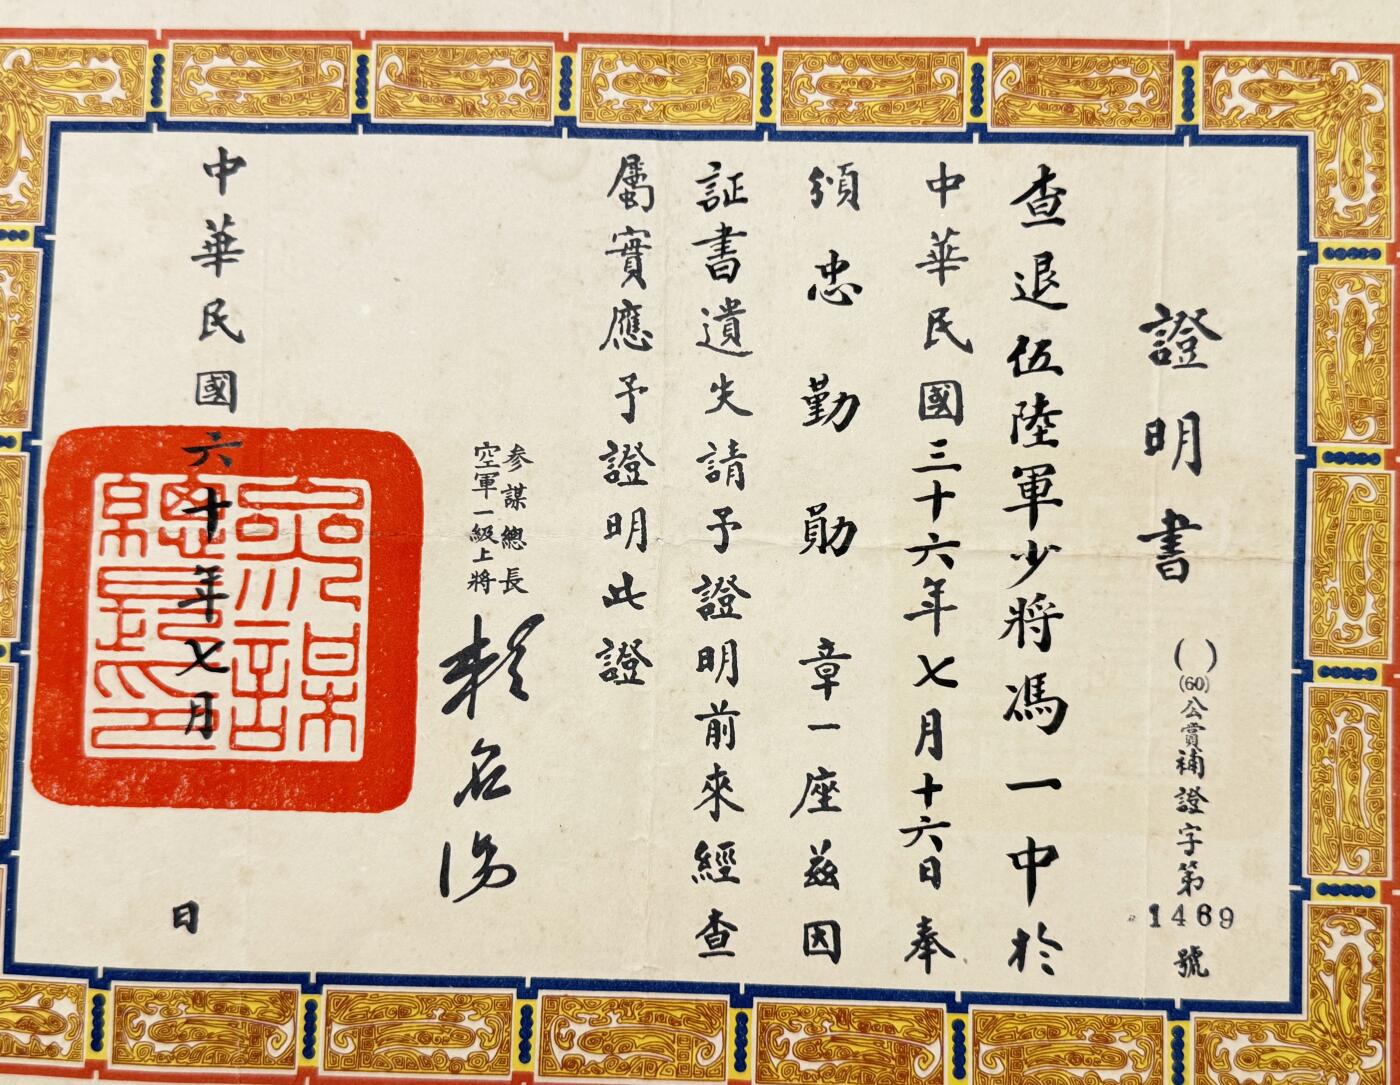 證明書
( )(60)公賞補證字第1469號
查退伍陸軍少將馮一中於
中華民國三十六年七月十六日奉
頒忠勤勛章一座茲因
証書遺失請予證明前來經查
屬實應予證明此證
參謀總長
空軍一級上將
賴名湯
中華民國六十年七月 日
參謀總長之印